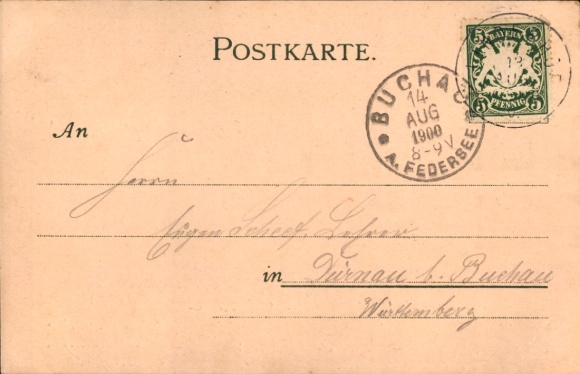 POSTKARTE.
5 BAYERN 5
5 PFENNIG 5
BUCHAU
14
AUG
1900
8-9 V
A. FEDERSEE
An
Herrn
Eugen Scheef, Lehrer
in Dürnau b. Buchau
Württemberg